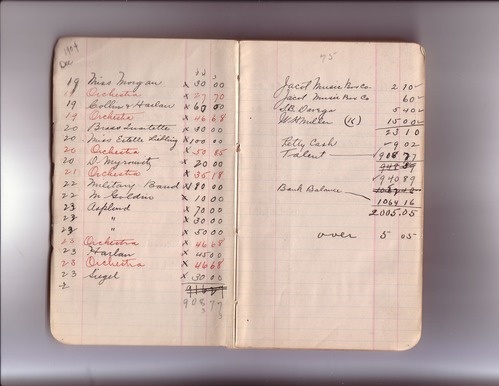 1904
Dec
19 Miss Morgan x 30 00
19 Orchestra x 27 70
19 Collins & Harlan x 60 00
19 Orchestra x 46 68
20 Brass Quartette x 30 00
20 Miss Estelle x 100 00
20 Orchestra x 50 85
20 D. x 20 00
21 Orchestra x 35 18
22 Military Band x 80 00
22 M x 10 00
23 Asplund x 70 00
23 " x 30 00
23 " x 50 00
23 Orchestra x 46 68
23 Harlan x 45 00
23 Orchestra x 46 68
23 Siegel x 30 00
908 77
75
Jacot Music Box Co. 2 10
Jacot Music Box Co 60
5 40
W H Miller (16) 15 00
23 10
Petty Cash 9 02
Talent 908 77
940 89
Bank Balance
1064 16
2005.05
over 5 05